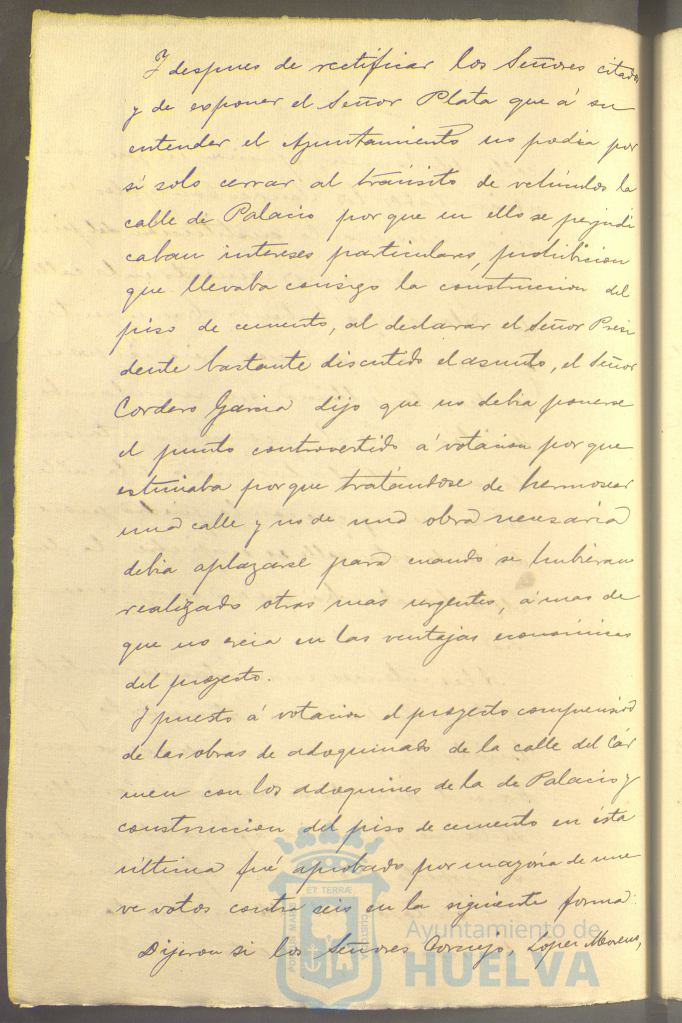 Y despues de rectificar los Señores citados
y de exponer el Señor Plata que á su
entender el Ayuntamiento no podia por
si solo cerrar al tránsito de vehiculos la
calle de Palacio porque en ello se perjudi
caban intereses particulares, prohibicion
que llevaba consigo la construccion del
piso de cemento, al declarar el Señor Presi
dente bastante discutido el asunto, el Señor
Cordero Garcia dijo que no debia ponerse
el punto controvertido á votacion porque
estimaba porque tratándose de hermosear
una calle y no de una obra necesaria
debia aplazarse para cuando se hubieran
realizado otras mas urgentes, á mas de
que no creia en las ventajas económicas
del proyecto.
Y puesto á votacion el proyecto comprensivo
de las obras de adoquinado de la calle del Cár
men con los adoquines de la de Palacio y
construccion del piso de cemento en ésta
última fué aprobado por mayoria de nue
ve votos contra seis en la siguiente forma:
Dijeron si los Señores Cornejo, Lopez Moreno,
ET TERRÆ
PORTUS MARIS
CUSTODIA
Ayuntamiento de
HUELVA